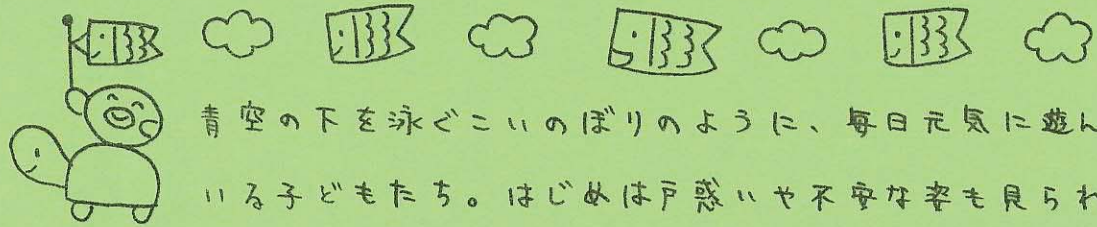 青空の下を泳ぐこいのぼりのように、毎日元気に遊ん
いる子どもたち。はじめは戸惑いや不安な姿も見られ